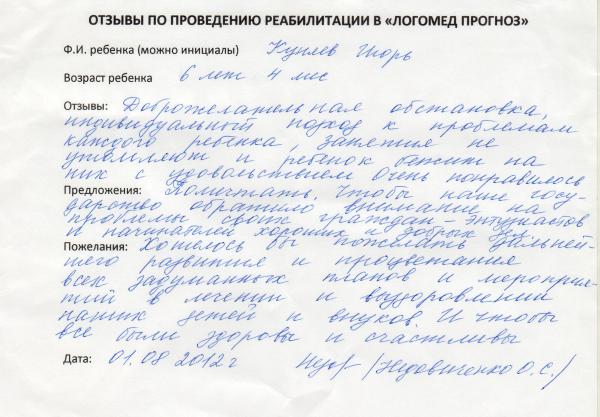 ОТЗЫВЫ ПО ПРОВЕДЕНИЮ РЕАБИЛИТАЦИИ В «ЛОГОМЕД ПРОГНОЗ»
Ф.И. ребенка (можно инициалы) Куняев Игорь
Возраст ребенка 6 лет 4 мес
Отзывы: Доброжелательная обстановка,
индивидуальный подход к проблемам
каждого ребенка, занятия не
утомляют и ребенок бежит на
них с удовольствием очень понравилось
Предложения: Помечтать. Чтобы наше госу-
дарство обратило внимание на
проблемы своих граждан энтузиастов
и начинателей хороших и добрых
Пожелания: Хотелось бы пожелать дальней-
шего развития и процветания
всех задуманных планов и мероприя-
тий в лечении и выздоровлении
наших детей и внуков. И чтобы
все были здоровы и счастливы
Дата: 01.08 2012 г /Недовиченко О.С./